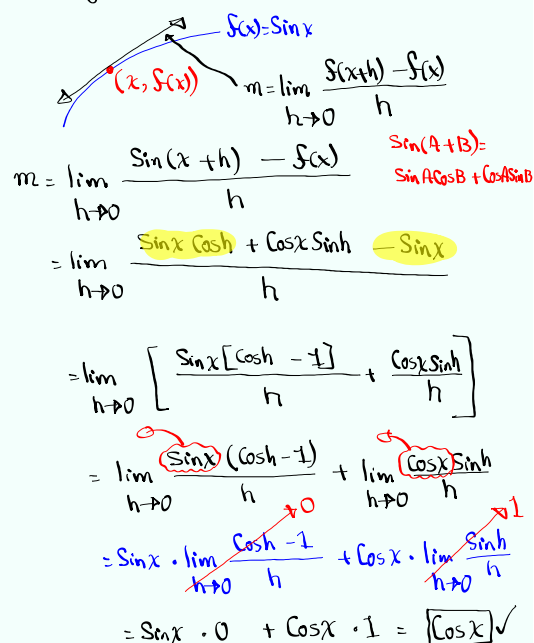 f(x)=Sinx
(x, f(x))
m = lim h→0 (f(x+h) - f(x))/h
Sin(A+B)=
SinACosB + CosASinB
m = lim h→0 (Sin(x+h) - f(x))/h
= lim h→0 (Sinx Cosh + Cosx Sinh - Sinx)/h
= lim h→0 [ Sinx[Cosh - 1]/h + CosxSinh/h ]
= lim h→0 Sinx (Cosh-1)/h + lim h→0 Cosx Sinh/h
→0 →1
= Sinx · lim h→0 (Cosh - 1)/h + Cosx · lim h→0 Sinh/h
= Sinx · 0 + Cosx · 1 = Cosx ✓